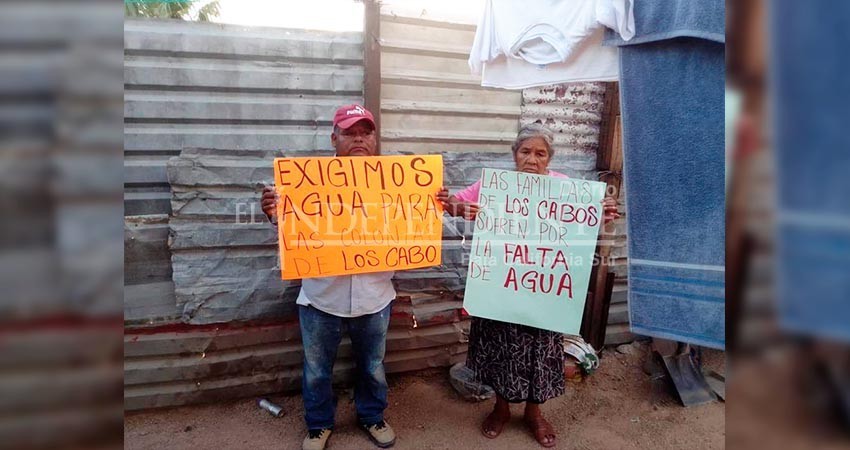 EXIGIMOS
AGUA PARA
LAS COLONIAS
DE LOS CABO
LAS FAMILIAS
DE LOS CABOS
SUFREN POR
LA FALTA
DE AGUA
EL INDEPENDIENTE
Baja California Sur